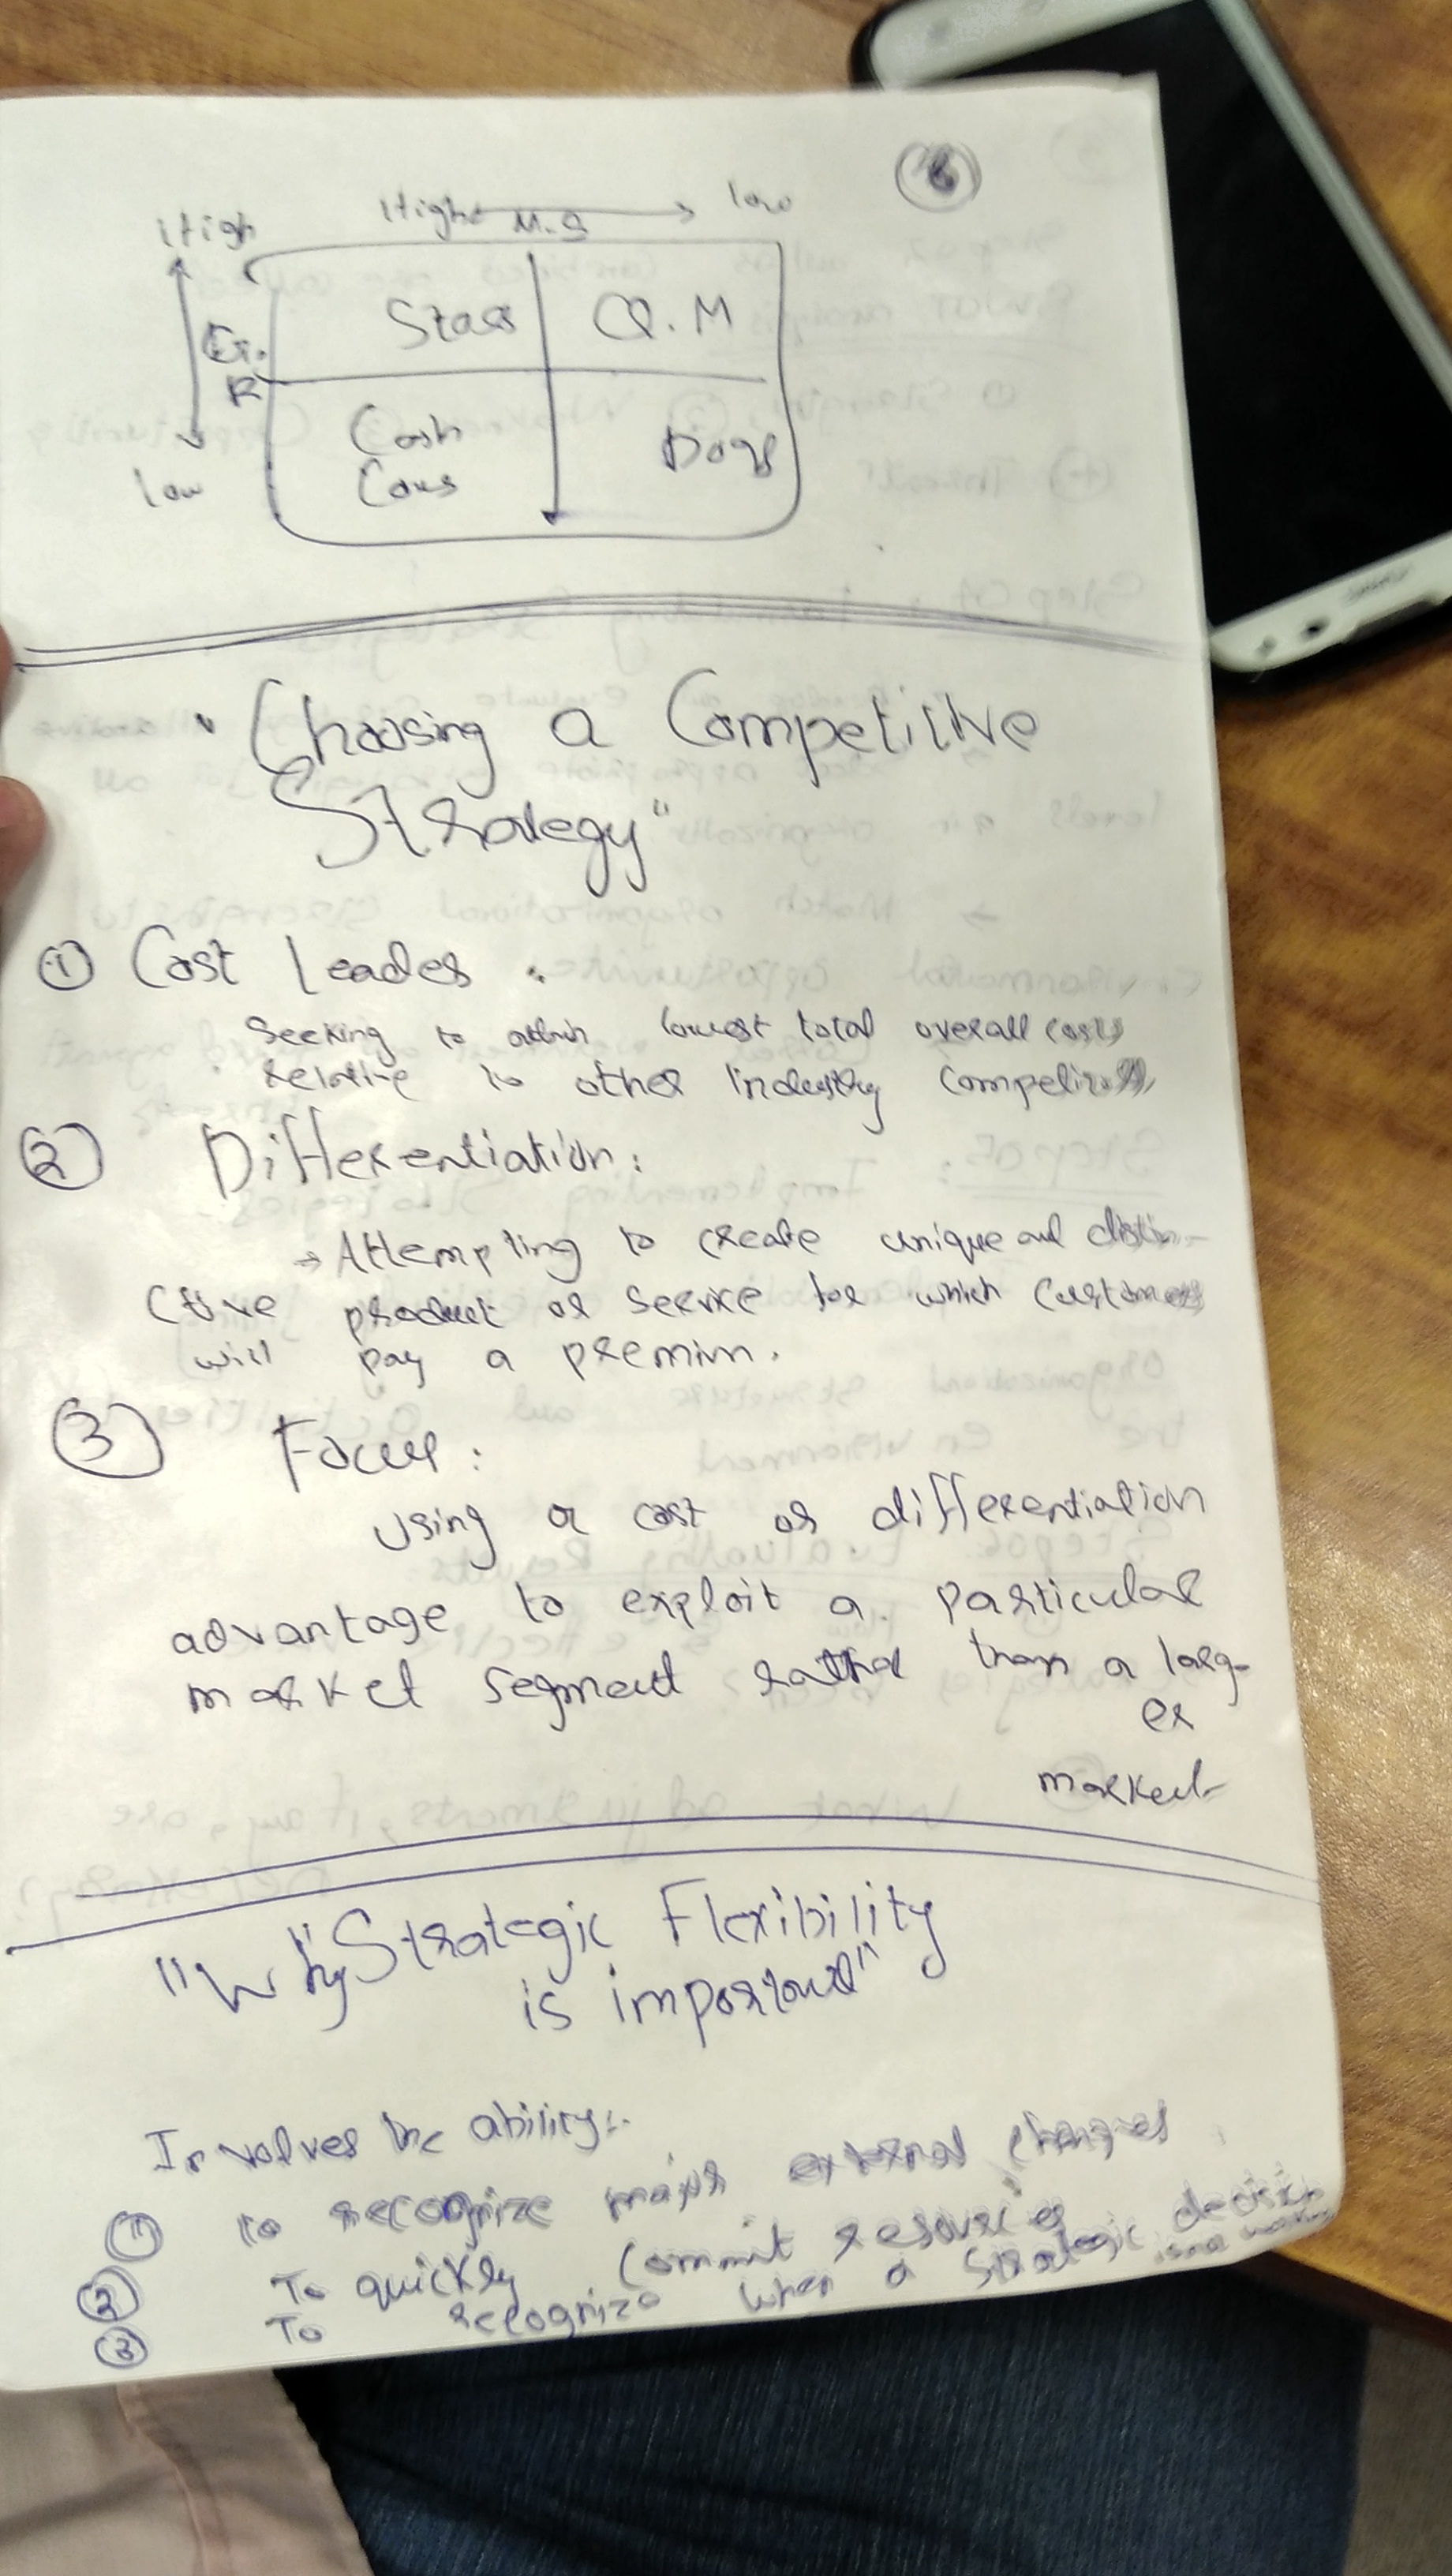 6
High → low
M.S
High
Stars Q.M
G.
R
Cash Dogs
Cows
low
"Choosing a Competitive
Strategy"
① Cost Leader :
Seeking to attain lowest total overall costs
relative to other Industry Competitors
② Differentiation:
→ Attempting to create unique and distin-
ctive product or service for which Customers
will pay a premim.
③ Focus :
Using a cost or differentiation
advantage to exploit a particular
market segment rather than a larg-
er
market
"Why Strategic Flexibility
is important"
Involves the ability:
① to recognize major external changes
② To quickly Commit resources
③ To recognize when a Strategic decision
is not working